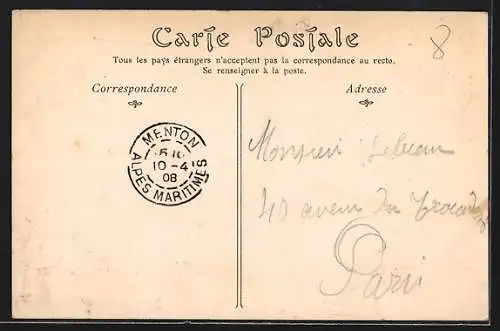 Carte Postale
8
Tous les pays étrangers n'acceptent pas la correspondance au recto.
Se renseigner à la poste.
Correspondance
Adresse
MENTON
10-4
08
ALPES MARITIMES
Monsieur Lebeau
48 avenue du Trocad
Paris